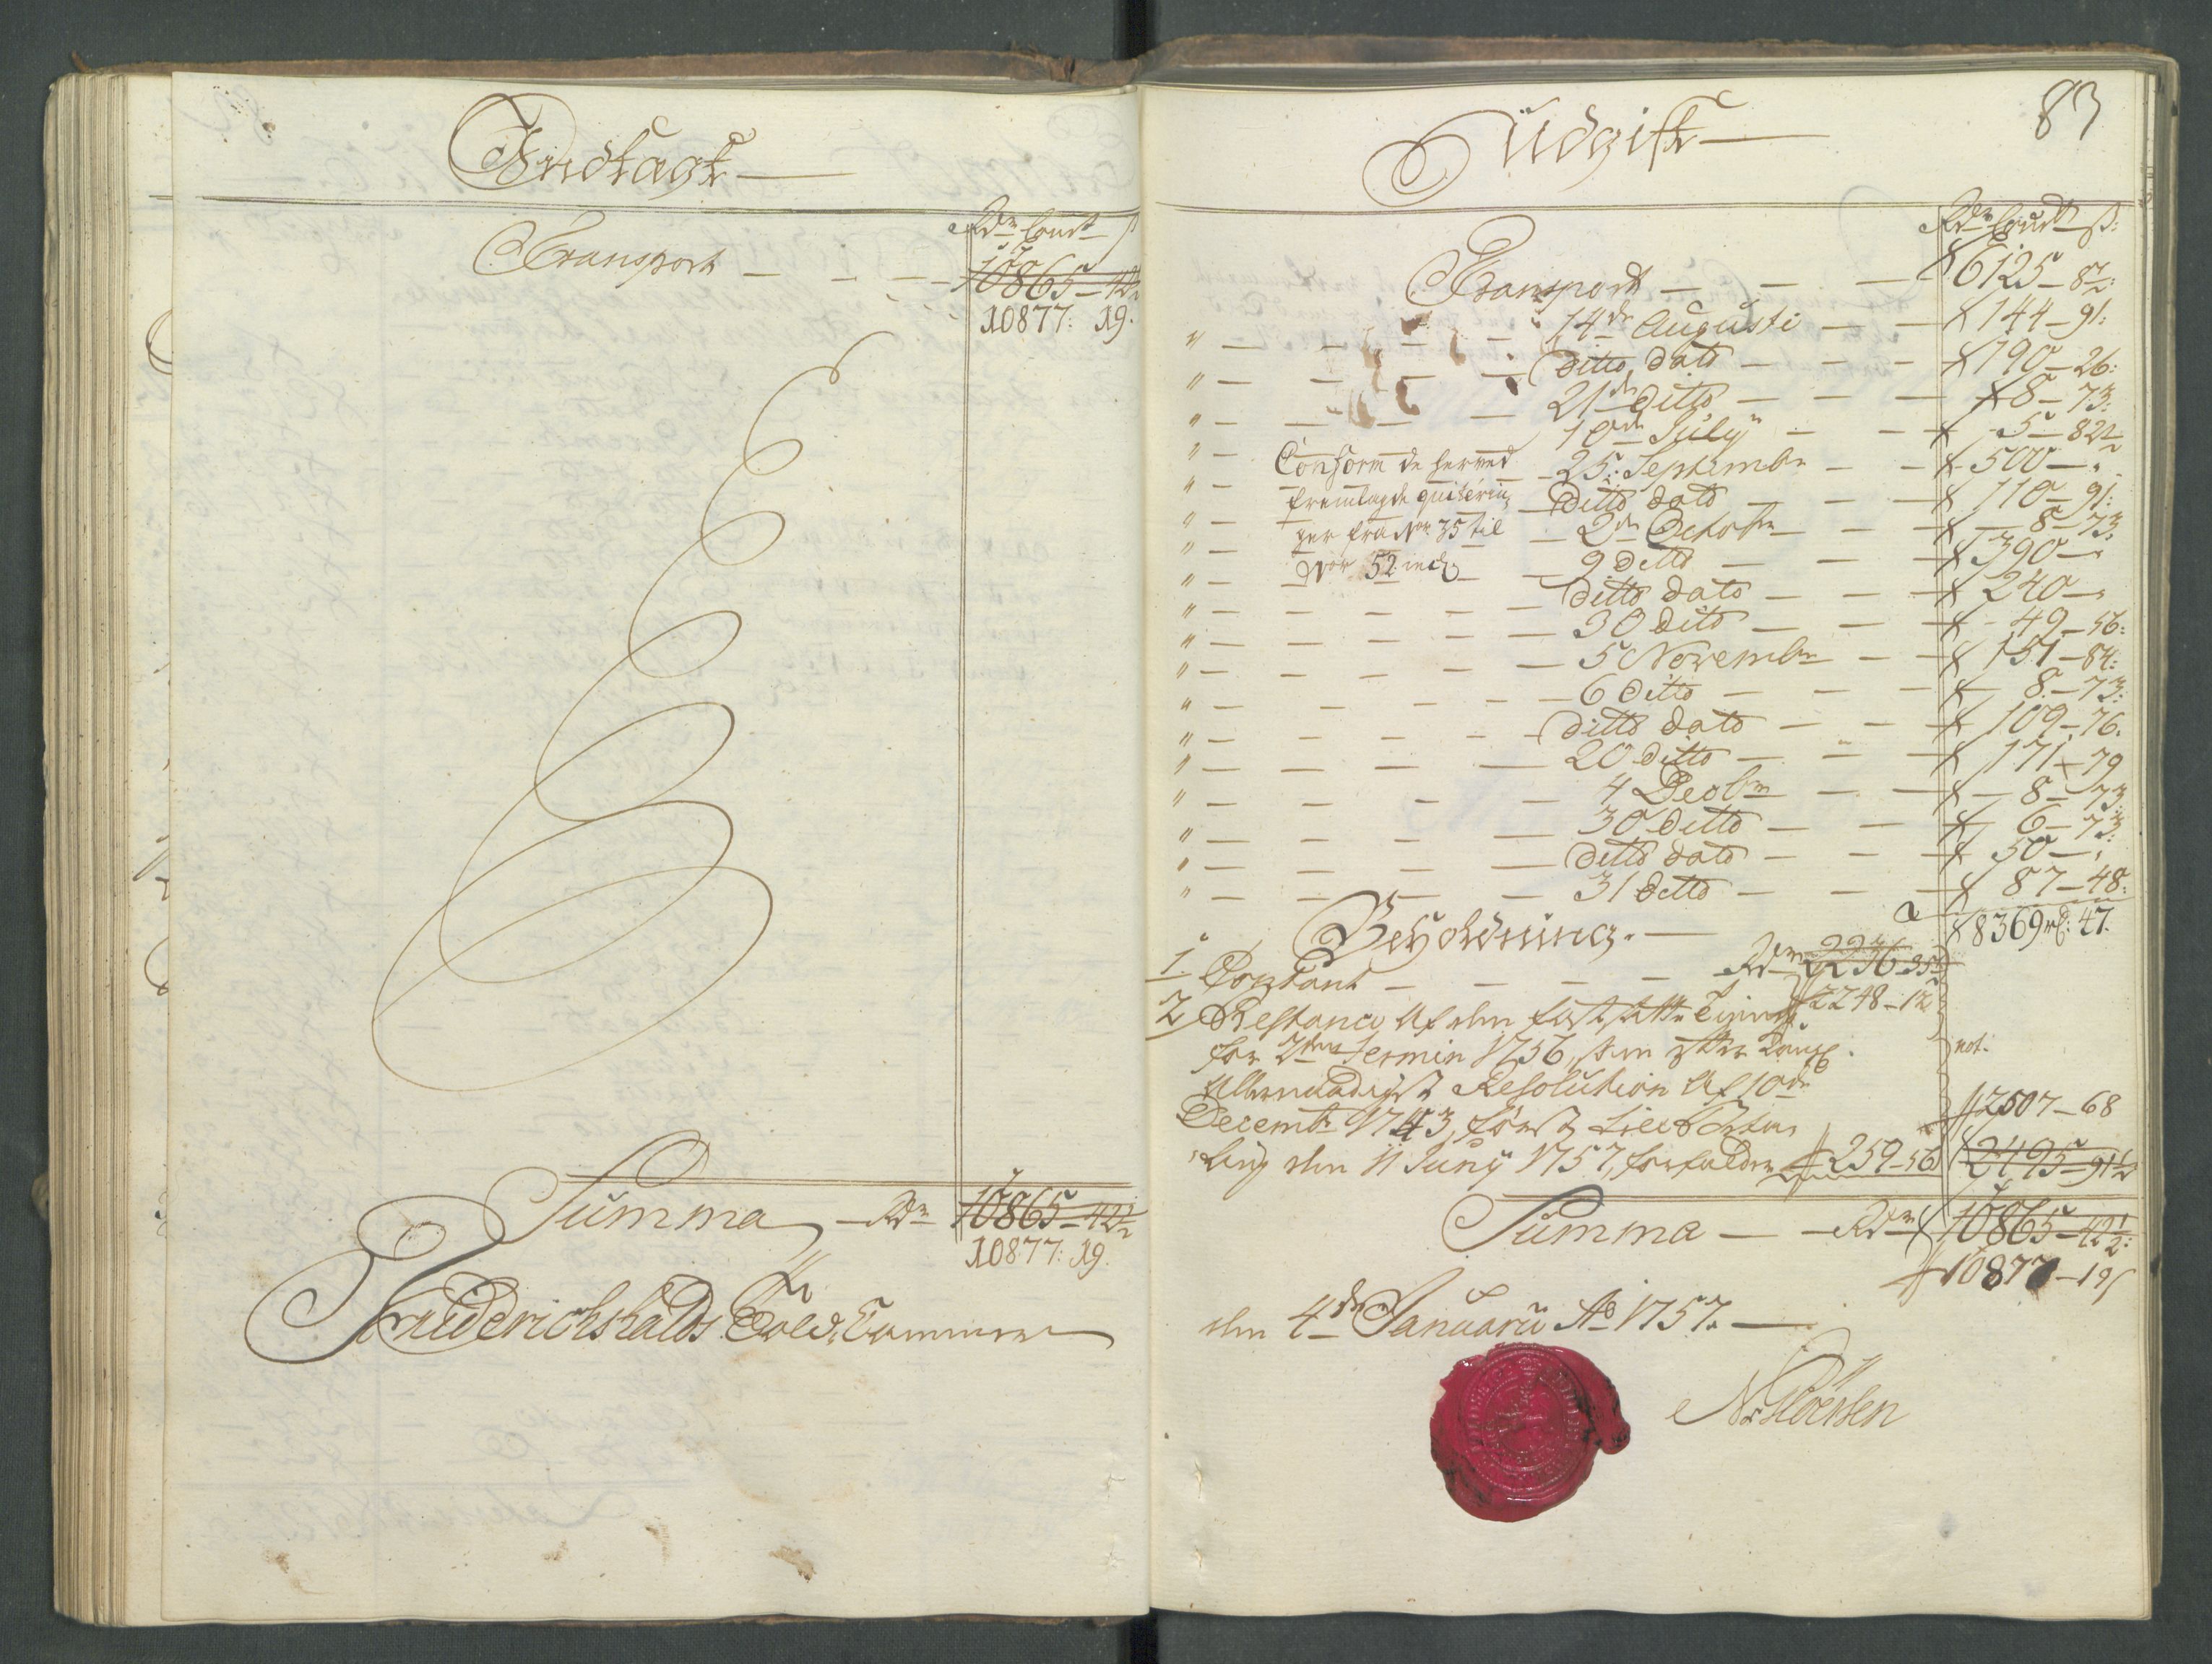 Indtægt
Rdr Courtt ß
Transport 10865 - 42½
10877: 19.
Summa Rdr 10865 - 42½
10877: 19.
Friderichshalds Told Cammer
83
Udgift
Rdr Courtt ß:
Transport 6125 - 8½:
" 14de Augusti 144 - 91:
" ditto dato 190 - 26:
" 21de ditto 8 - 73:
" 10de July 5 - 82½
" Conform de herved 25: Septembr 500 - "
" fremlagde quiterin, ditto dato 110 - 91:
" ger fra No 35 til 2de Octobr 8 - 73:
" No 52 incl. 9 ditto 390 - "
" ditto dato 240 - "
" 30 dito 49 - 56:
" 5 Novembr 151 - 84:
" 6 ditto 8 - 73:
" ditto dato 109 - 76.
" 20 ditto 171 - 79
" 4 Decbr 8 - 73:
" 30 ditto 6 - 73:
" ditto dato 50 - "
" 31 ditto 87 - 48:
Beholdning. 8369 rd: 47.
1. Contant Rdr 2236 - 35½
2248 - 12
2 Restance af den fastsatte
for 2den Termin 1756, som efter Kongl.
not.
Allernaadigst Resolution af 10de
Decembr 1743, først til
2507 - 68
ling den 11 Juny 1757, forfalder 259 - 56 2495 - 91½
Summa Rdr 10865 - 42½:
10877 - 19
den 4de Januarii Ao 1757.